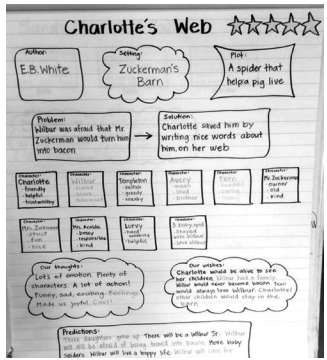 Charlotte's Web
Author:
E.B. White
Setting:
Zuckerman's
Barn
Plot:
A spider that
helps a pig live
Problem:
Wilbur was afraid that Mr.
Zuckerman would turn him
into bacon
Solution:
Charlotte saved him by
writing nice words about
him, on her web
Charlotte
-friendly
-helpful
-trustworthy
Wilbur
Templeton
-selfish
-greedy
-sneaky
Avery
Fern
Mr. Zuckerman
-owner
-old
-kind
-strict
-fun
-nice
Mr. Arable
-busy
-responsible
-kind
Lurvy
-hard
working
-helpful
Our thoughts:
Lots of emotion. Plenty of
characters. A lot of action!
Funny, sad, exciting. Feelings
Made us joyful. Cool!
Our wishes:
Charlotte would be alive to see
her children. Wilbur had a family.
Wilbur would never become bacon. Fern
would always love Wilbur. Charlotte's
other children would stay in the
barn.
Predictions:
Three daughters grow up. There will be a Wilbur Jr. Wilbur
will still be afraid of being turned into bacon. More baby
spiders. Wilbur will live a happy life. Wilbur will